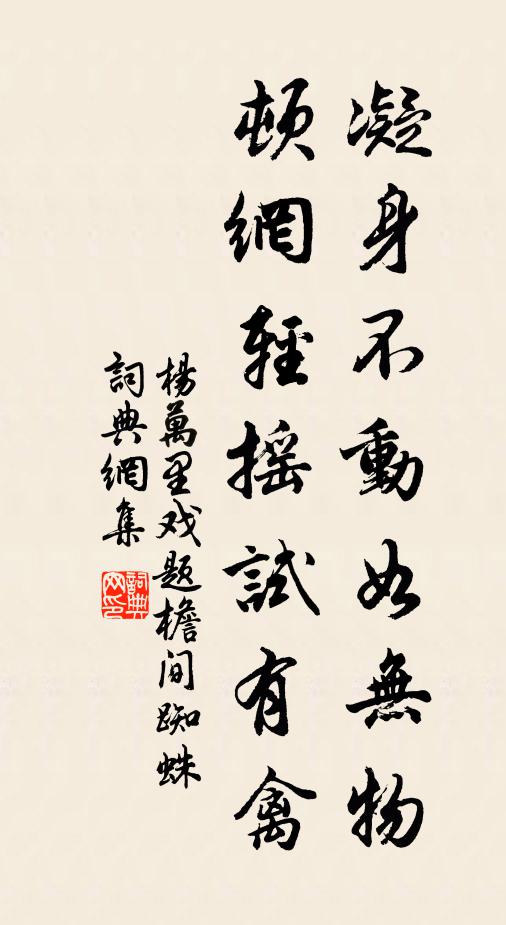 凝身不動如無物
頓網輕搖試有禽
楊萬里戏题檐间蜘蛛
詞典網集
詞典
网印